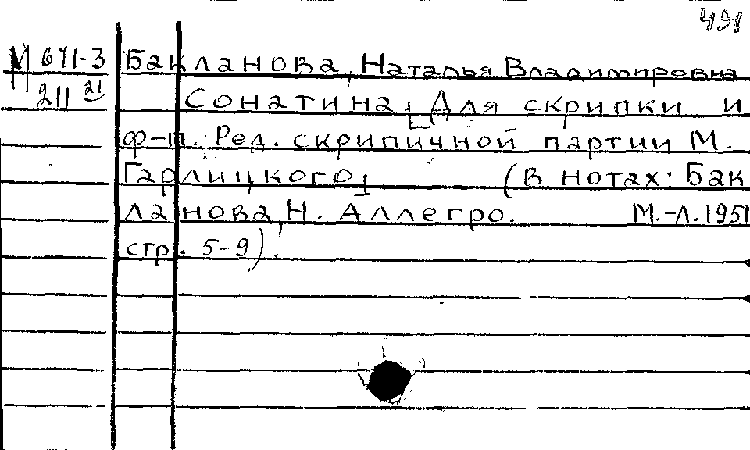 М 671-3 Бакланова, Наталья Владимировна
211 21 Сонатина. [Для скрипки и
ф-п. Ред. скрипичной партии М.
Гарлицкого] (В нотах: Бак
ланова, Н. Аллегро. М.-Л. 1951
стр. 5-9).